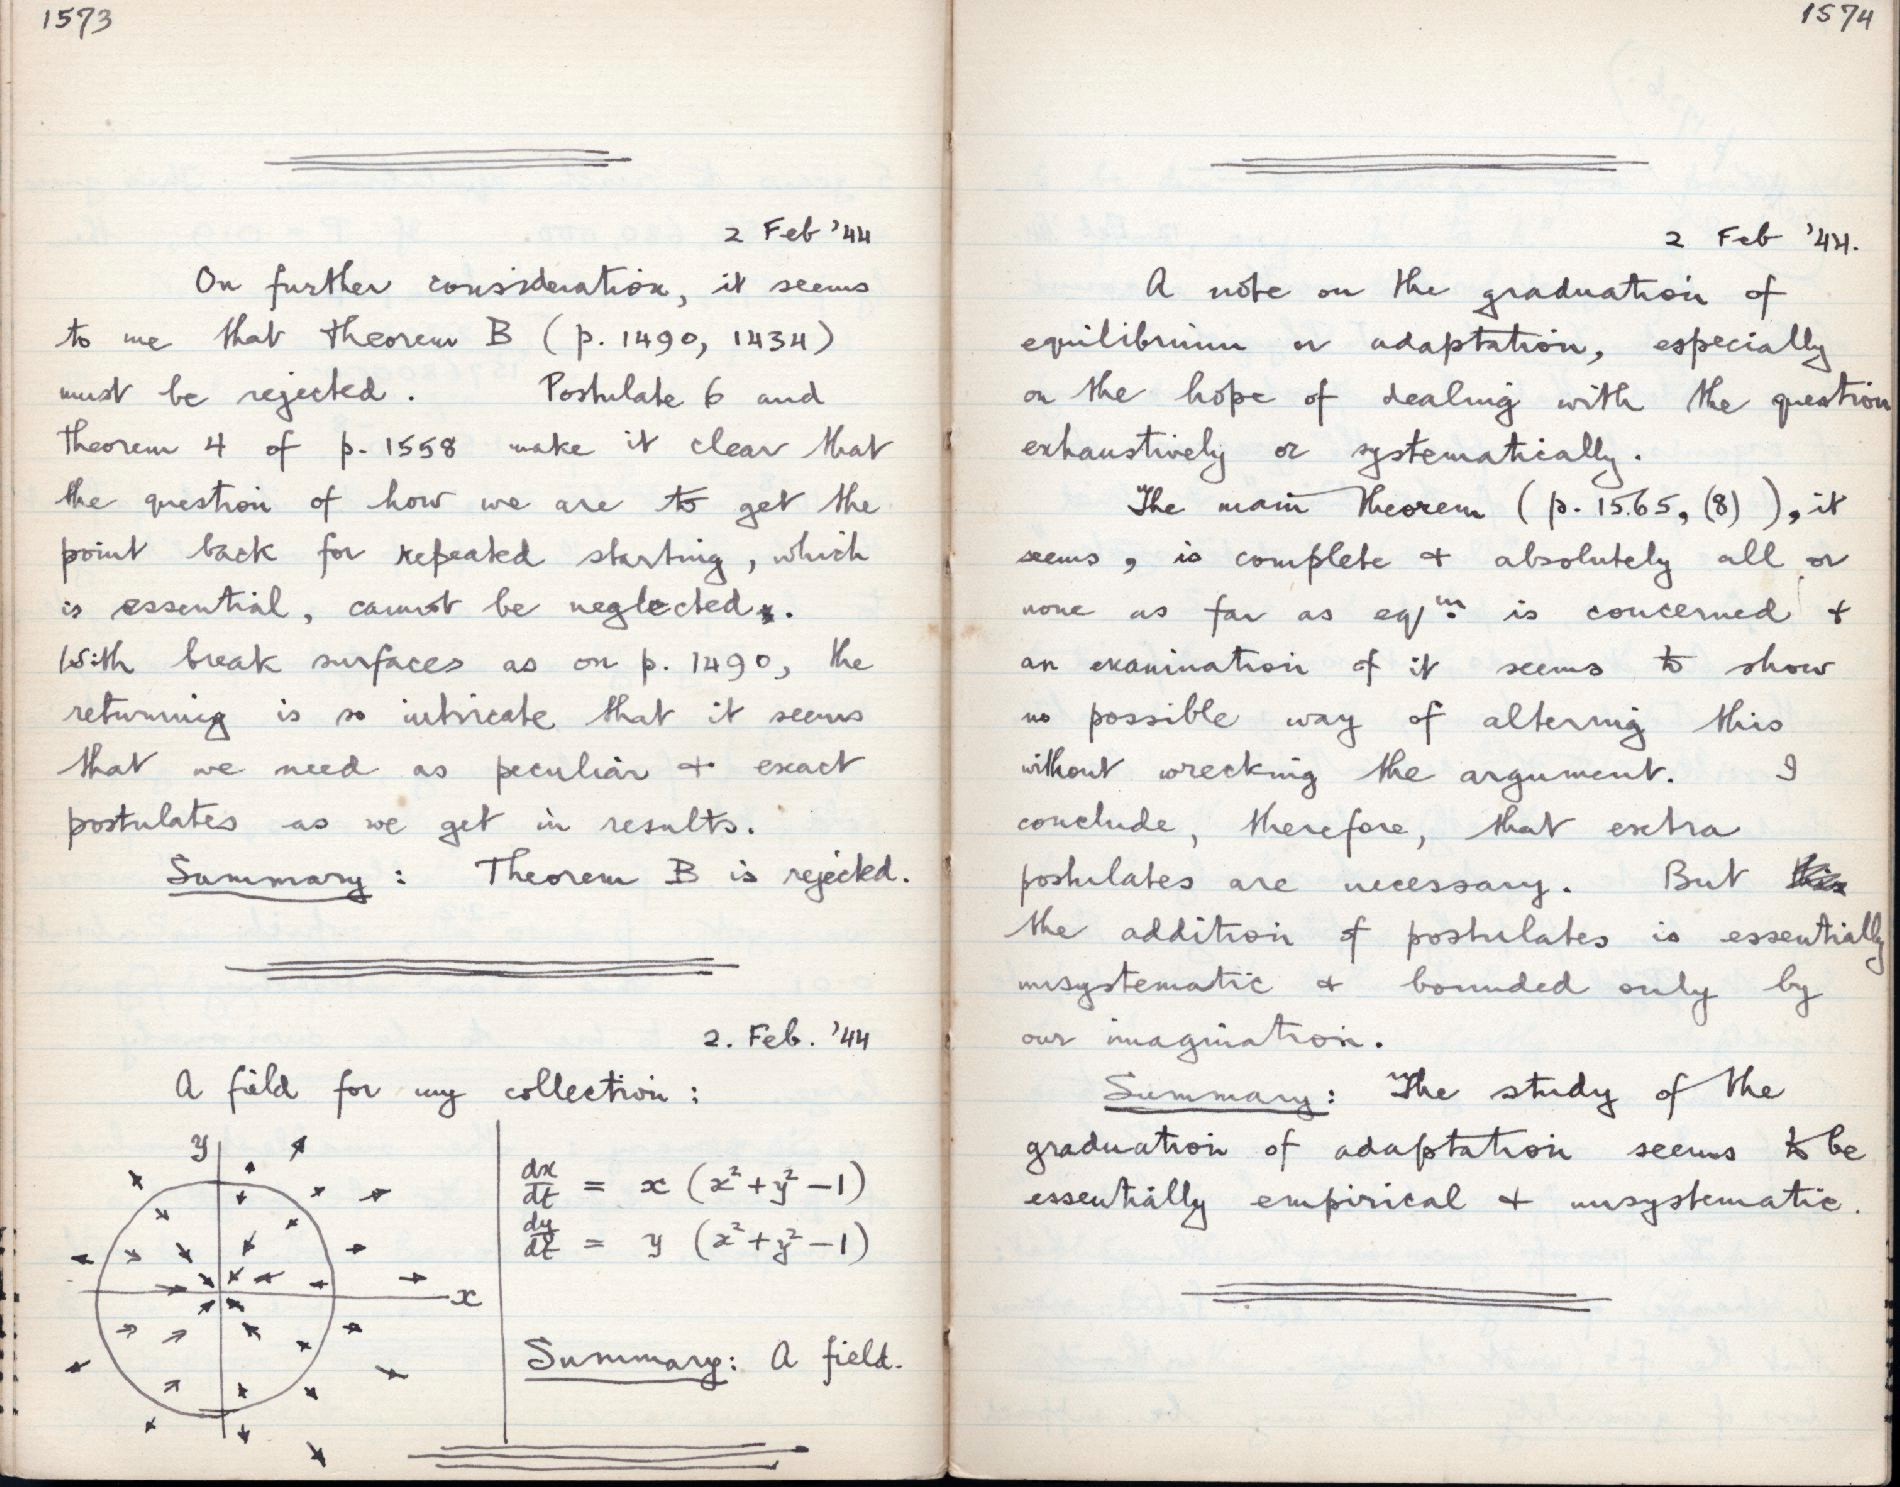 1573
2 Feb '44
On further consideration, it seems
to me that theorem B (p. 1490, 1434)
must be rejected. Postulate 6 and
theorem 4 of p. 1558 make it clear that
the question of how we are to get the
point back for repeated starting, which
is essential, cannot be neglected.
With break surfaces as on p. 1490, the
returning is so intricate that it seems
that we need as peculiar & exact
postulates as we get in results.
Summary: Theorem B is rejected.
2. Feb. '44
A field for my collection:
y
x
dx/dt = x (x² + y² − 1)
dy/dt = y (x² + y² − 1)
Summary: A field.
1574
2 Feb '44.
A note on the graduation of
equilibrium or adaptation, especially
on the hope of dealing with the question
exhaustively or systematically.
The main theorem (p. 1565, (8)), it
seems, is complete & absolutely all or
none as far as eqᵐ. is concerned &
an examination of it seems to show
no possible way of altering this
without wrecking the argument. I
conclude, therefore, that extra
postulates are necessary. But
the addition of postulates is essentially
unsystematic & bounded only by
our imagination.
Summary: The study of the
graduation of adaptation seems to be
essentially empirical & unsystematic.